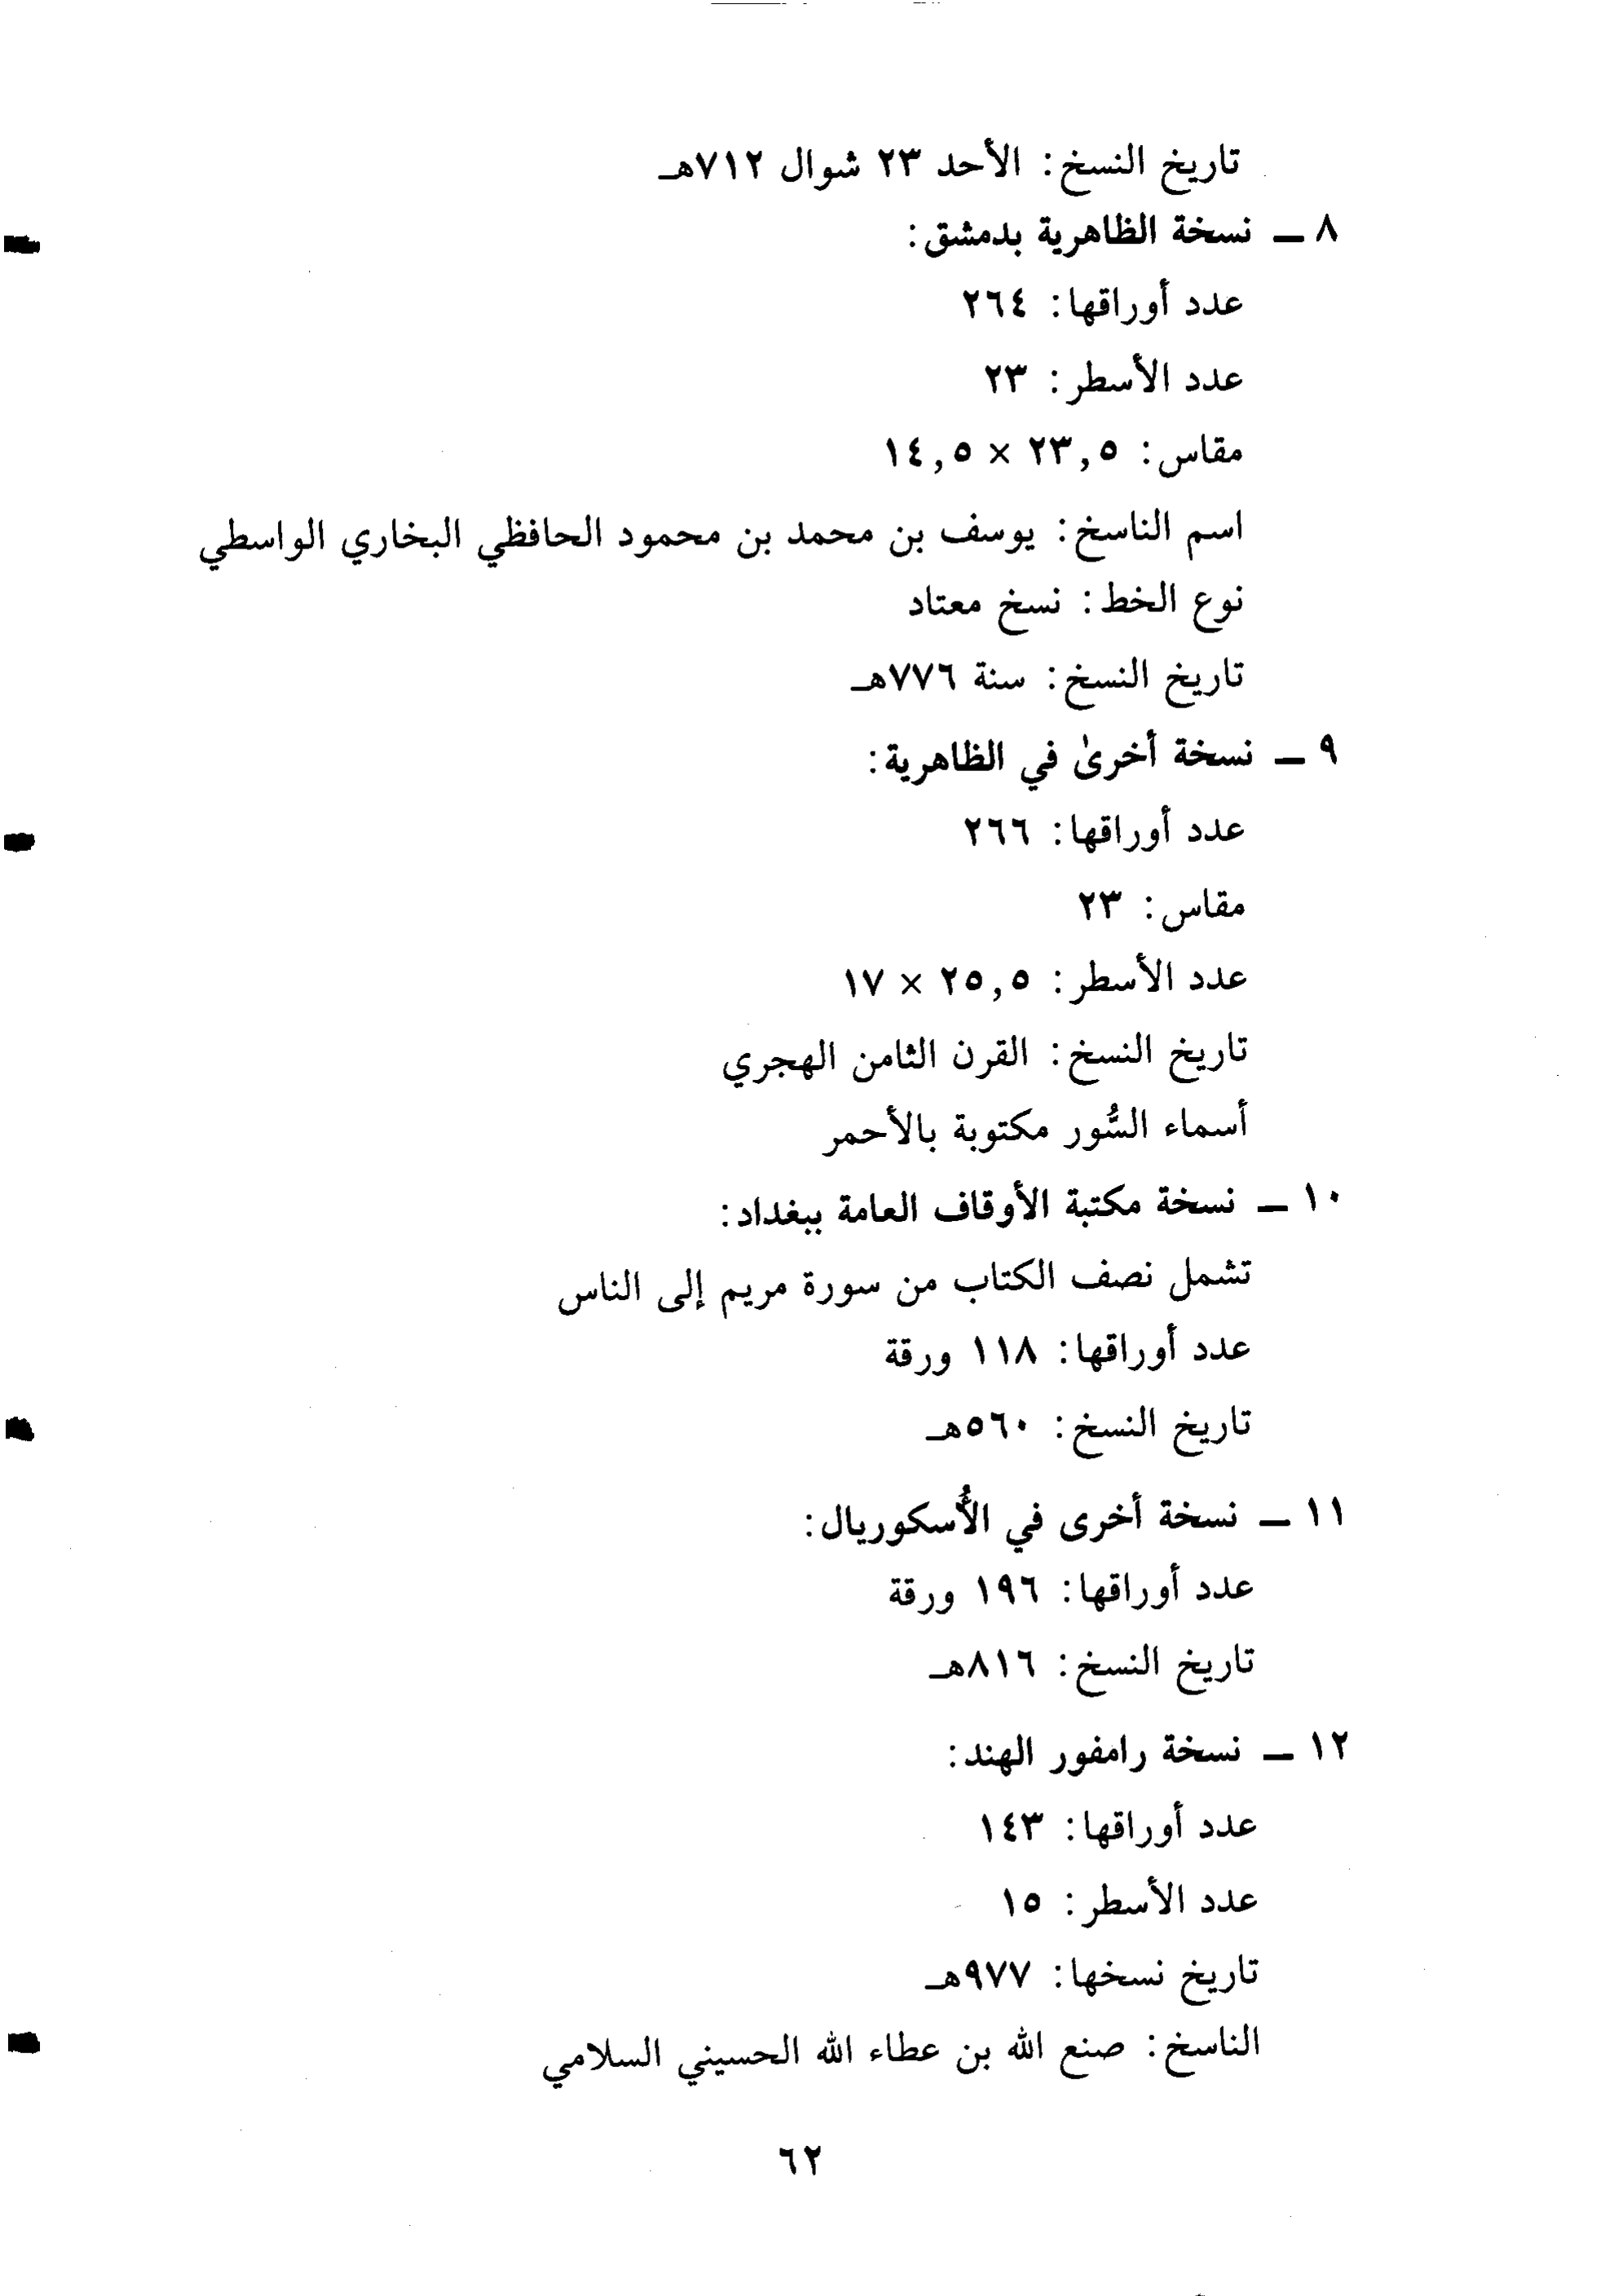 تاريخ النسخ: الأحد ٢٣ شوال ٧١٢هـ
٨ ــ نسخة الظاهرية بدمشق:
عدد أوراقها: ٢٦٤
عدد الأسطر: ٢٣
مقاس: ٢٣,٥ × ١٤,٥
اسم الناسخ: يوسف بن محمد بن محمود الحافظي البخاري الواسطي
نوع الخط: نسخ معتاد
تاريخ النسخ: سنة ٧٧٦هـ
٩ ــ نسخة أخرىٰ في الظاهرية:
عدد أوراقها: ٢٦٦
مقاس: ٢٣
عدد الأسطر: ٢٥,٥ × ١٧
تاريخ النسخ: القرن الثامن الهجري
أسماء السُّور مكتوبة بالأحمر
١٠ ــ نسخة مكتبة الأوقاف العامة ببغداد:
تشمل نصف الكتاب من سورة مريم إلى الناس
عدد أوراقها: ١١٨ ورقة
تاريخ النسخ: ٥٦٠هـ
١١ ــ نسخة أخرى في الأُسكوريال:
عدد أوراقها: ١٩٦ ورقة
تاريخ النسخ: ٨١٦هـ
١٢ ــ نسخة رامفور الهند:
عدد أوراقها: ١٤٣
عدد الأسطر: ١٥
تاريخ نسخها: ٩٧٧هـ
الناسخ: صنع الله بن عطاء الله الحسيني السلامي
٦٢